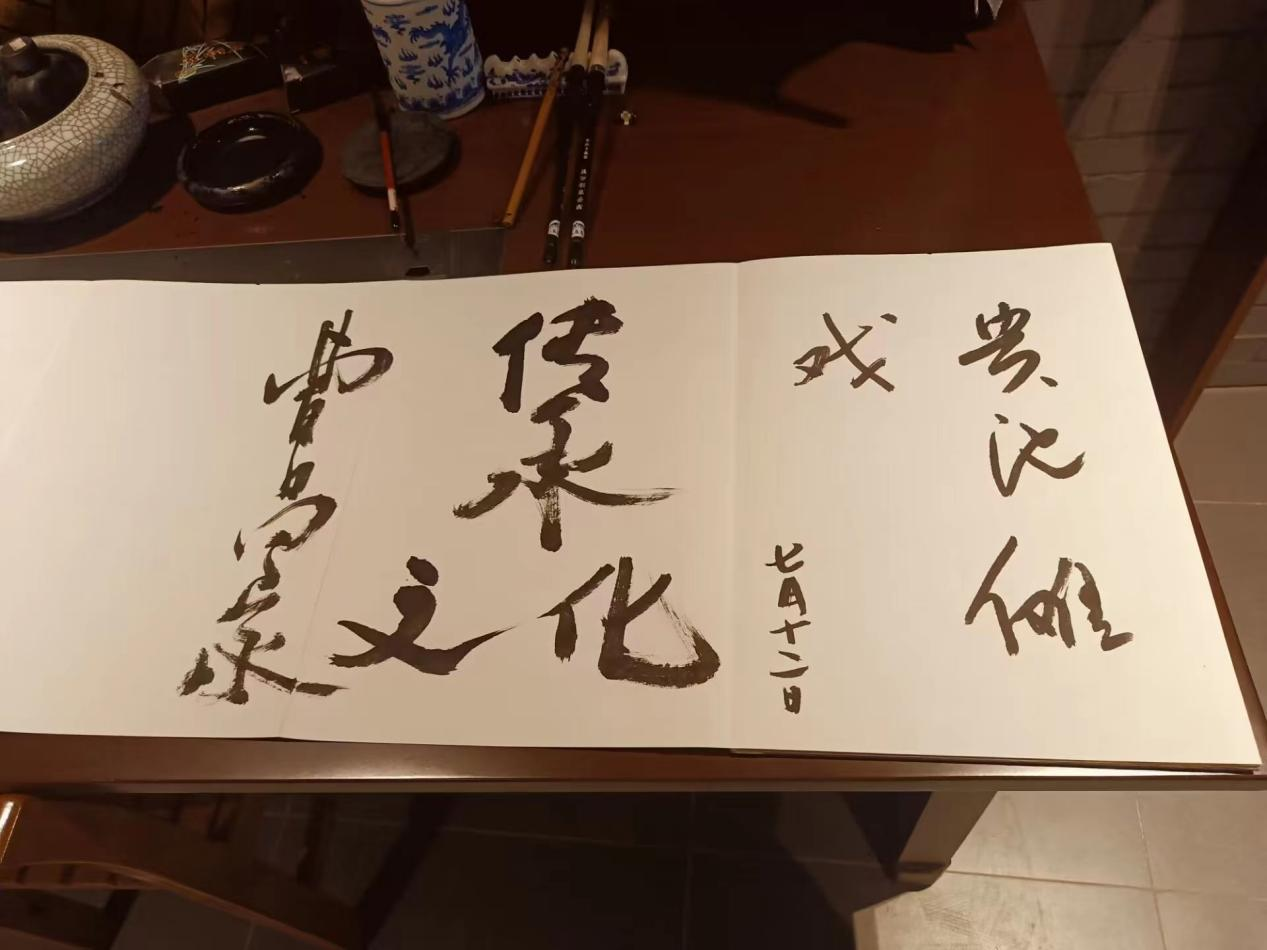 贵池傩
戏
七月十二日
传承
文化